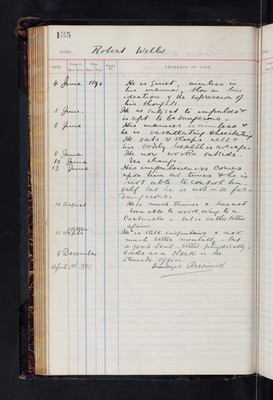 135
NAME, Robert Wells
DATE. PROGRESS OF CASE.
4 June 1890 He is quiet, aimless in
his manner, slow in his
ideation & the expression of
his thoughts.
5 June. He is subject to impulses &
is apt to be dangerous.
6 June His manner is aimless &
he is vacillating & hesitating
He eats & sleeps well &
his bodily health is average.
8 June He now works outside.
10 June No change.
13 June His impulsiveness comes
upon him at times & he is
not able to control him-
self but he is not
Dangerous.
10 August He is much thinner & has not
been able to work owing to a
Carbuncle. but is rather better
again.
15 Septr He is still impulsive & not
much better mentally, but
a good deal better physically.
6 December Works as a clerk in the
Stewards office
April 1st 1891 Discharged Recovered